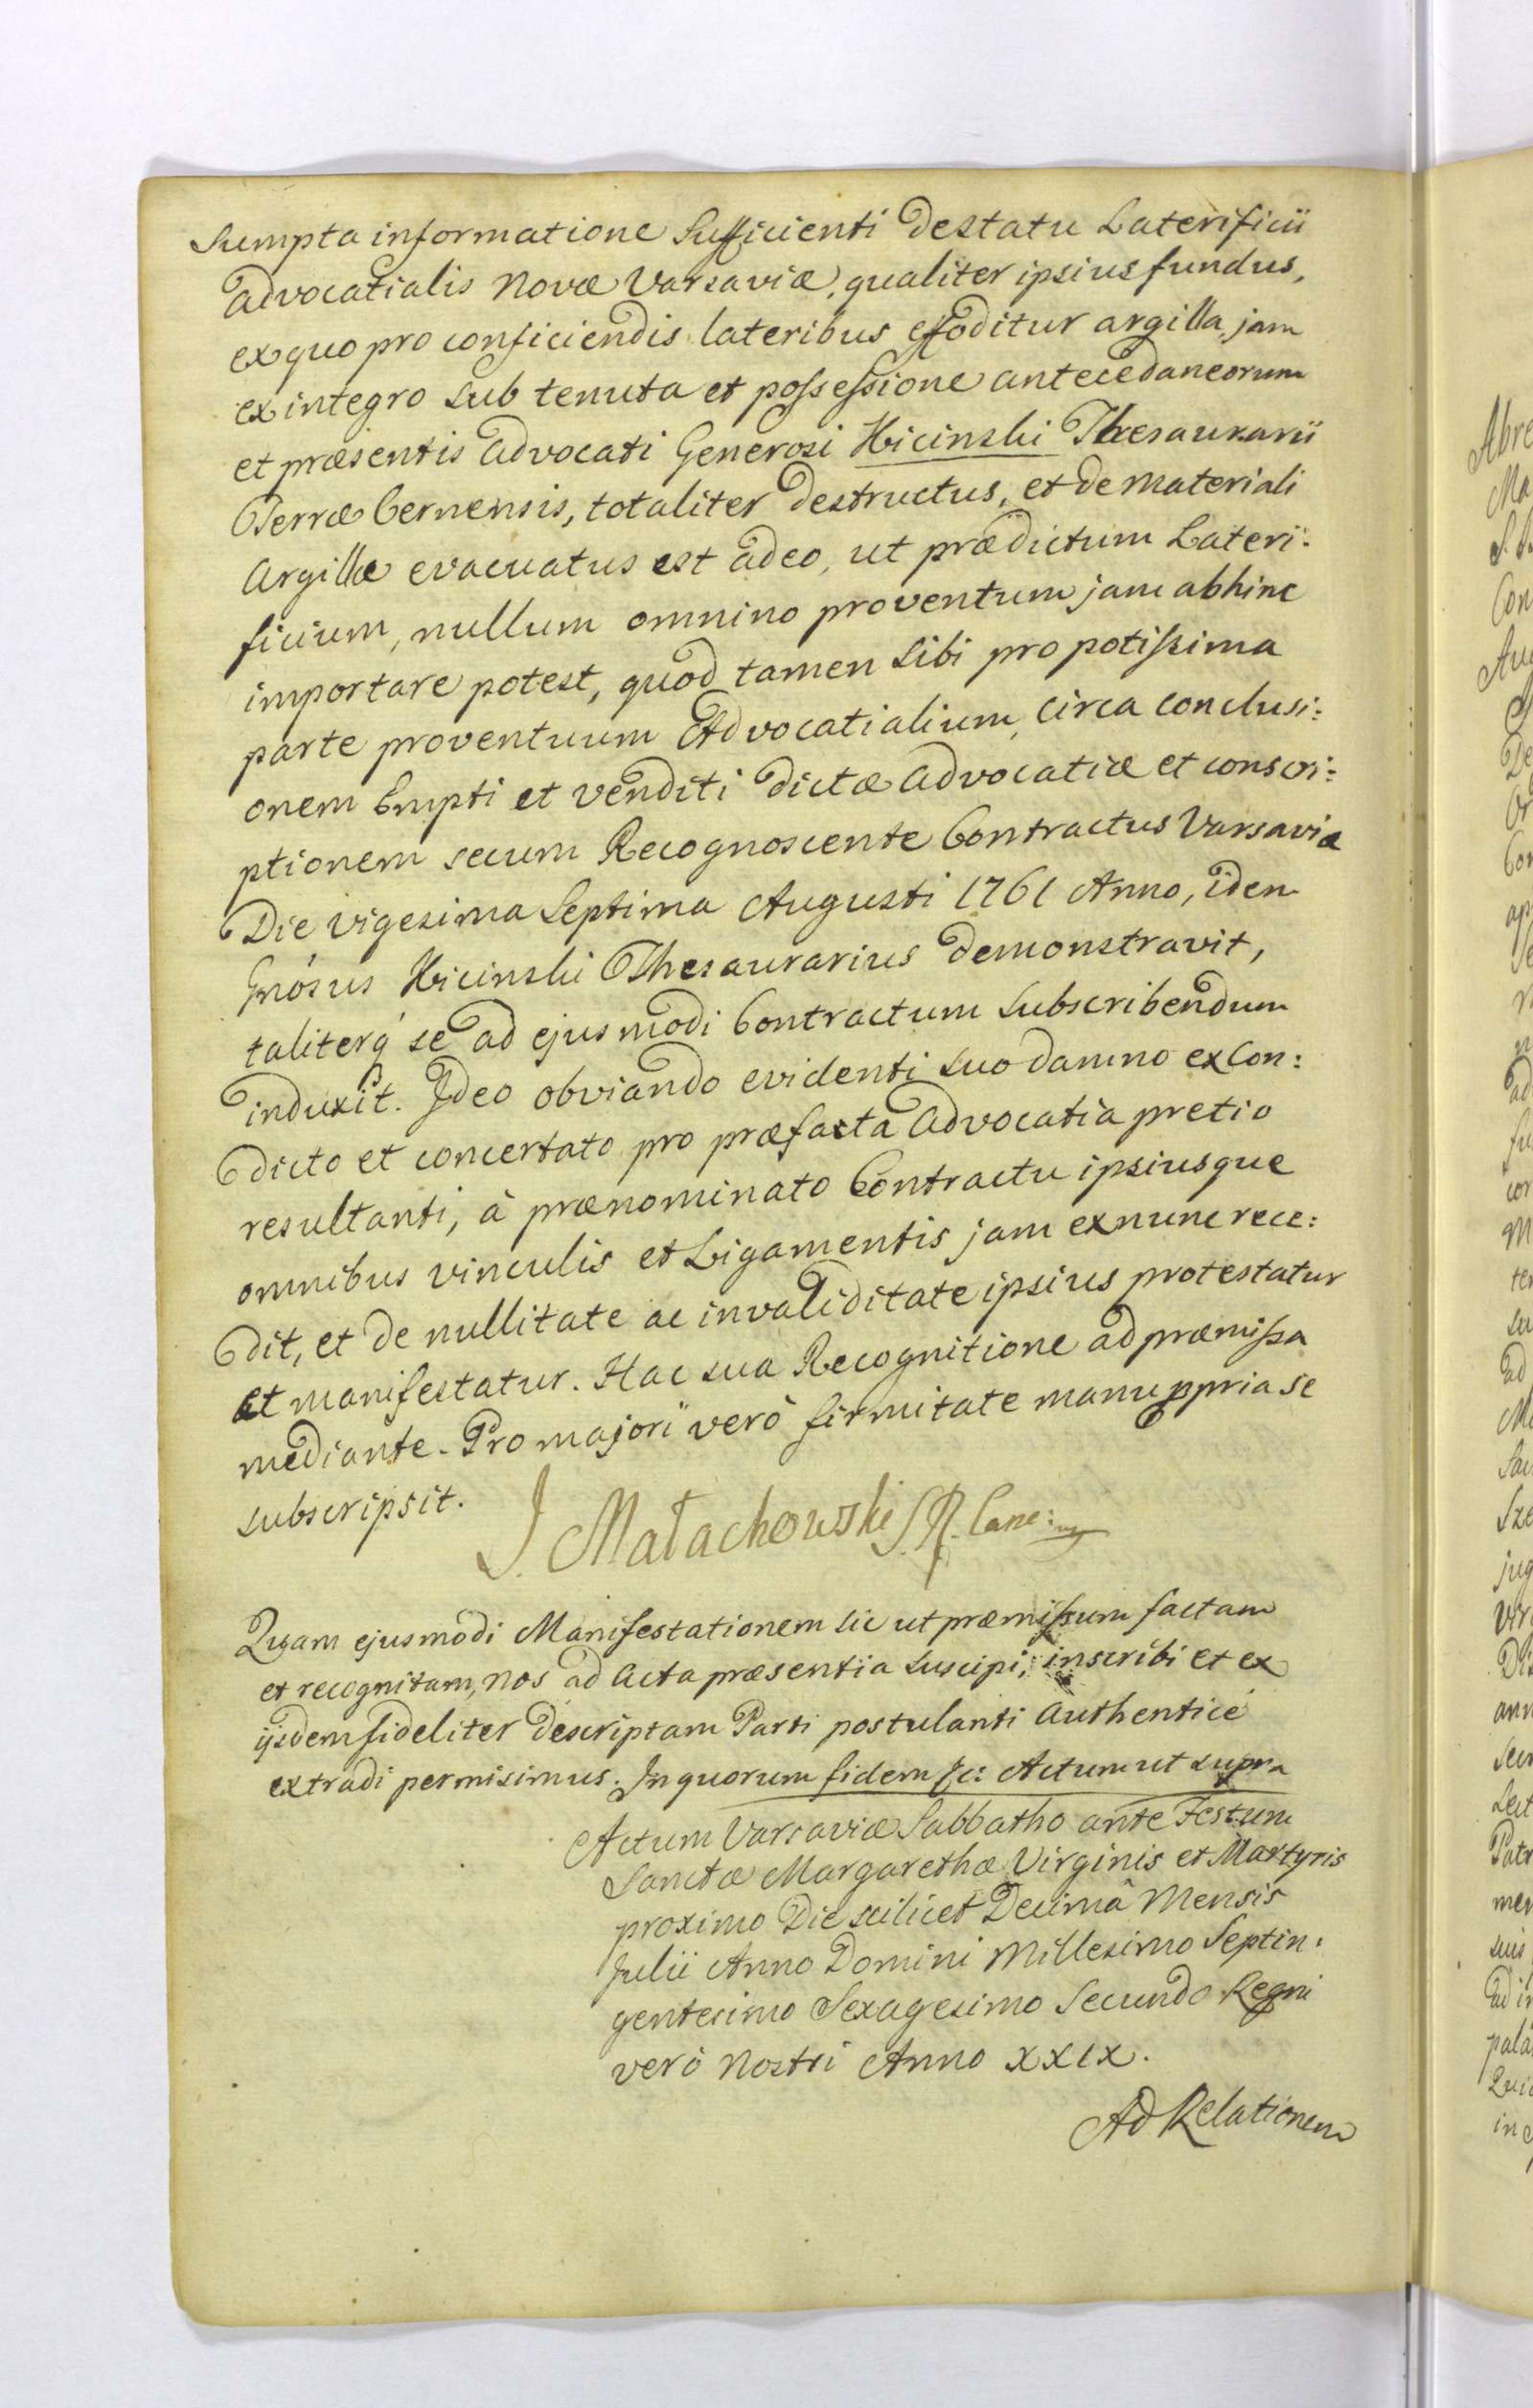 Sumpta informatione Sufficienti de statu Laterificii
advocatialis Novæ Varsaviæ, qualiter ipsius fundus,
ex quo pro conficiendis lateribus effoditur argilla, jam
ex integro sub tenuta et possessione antecedaneorum
et præsentis advocati Generosi Hicinski Thesaurarii
Terræ Cernensis, totaliter destructus, et de materiali
argillæ evacuatus est adeo, ut prædictum Lateri:
ficium, nullum omnino proventum jam abhinc
importare potest, quod tamen sibi pro potissima
parte proventuum Advocatialium, circa conclusi:
onem Empti et venditi dictæ advocatiæ et conscri:
ptionem secum Recognoscente Contractus Varsaviæ
Die vigesima Septima Augusti 1761 Anno, idem
Gnosus Hicinski Thesaurarius demonstravit,
taliterq' se ad ejusmodi Contractum subscribendum
induxit. Ideo obviando evidenti suo damno ex Con:
dicto et concertato pro præfacta advocatia pretio
resultanti, à prænominato Contractu ipsiusque
omnibus vinculis et Ligamentis jam ex nunc rece:
dit, et de nullitate ac invaliditate ipsius protestatur
et manifestatur. Hac sua Recognitione ad præmissa
mediante. Pro majori verò firmitate manu ppria se
subscripsit.
J Małachowski S. R. Canc:
Quam ejusmodi Manifestationem sic ut præmissum factam
et recognitam, nos ad Acta præsentia suscipi, inscribi et ex
ijsdem fideliter descriptam Parti postulanti Authenticè
extradi permisimus. In quorum fidem &c: Actum ut supra
Actum Varsaviæ Sabbatho ante Festum
Sanctæ Margarethæ Virginis et Martyris
proximo Die scilicet Decimâ Mensis
Julii Anno Domini Millesimo Septin:
gentesimo Sexagesimo Secundo Regni
verò Nostri Anno XXIX.
Ad Relationem